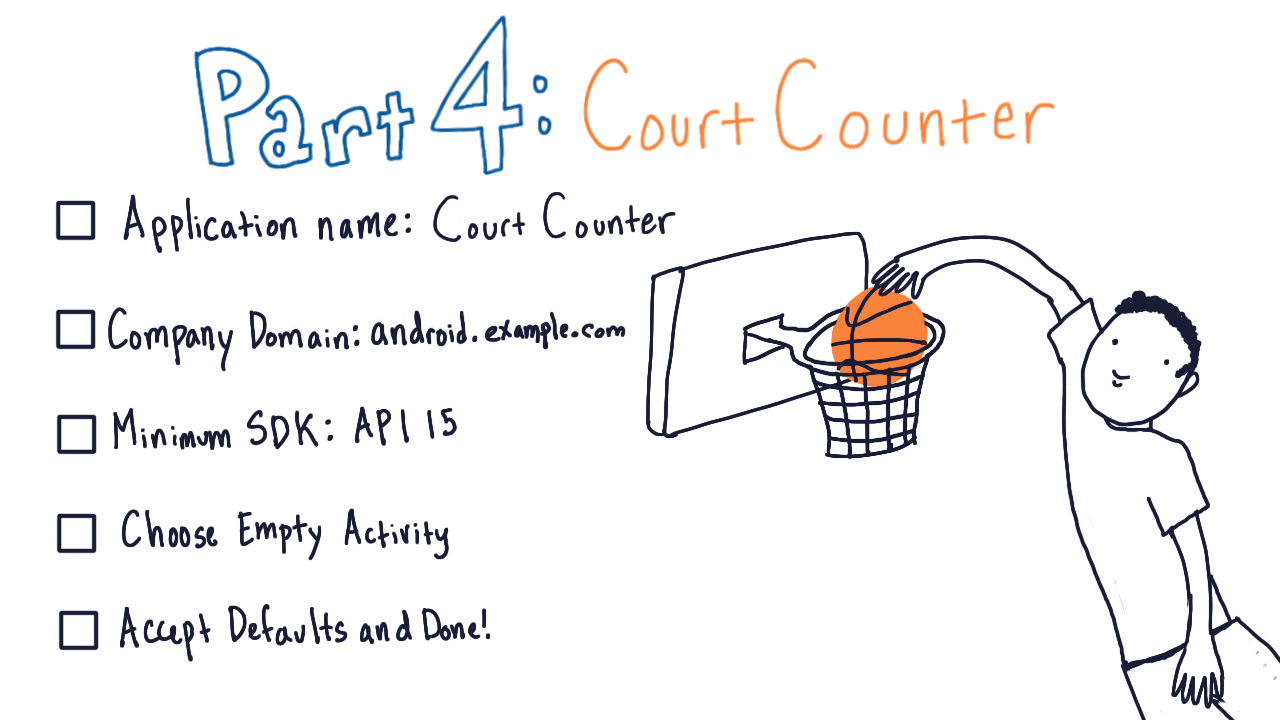 Part 4: Court Counter
Application name: Court Counter
Company Domain: android.example.com
Minimum SDK: API 15
Choose Empty Activity
Accept Defaults and Done!